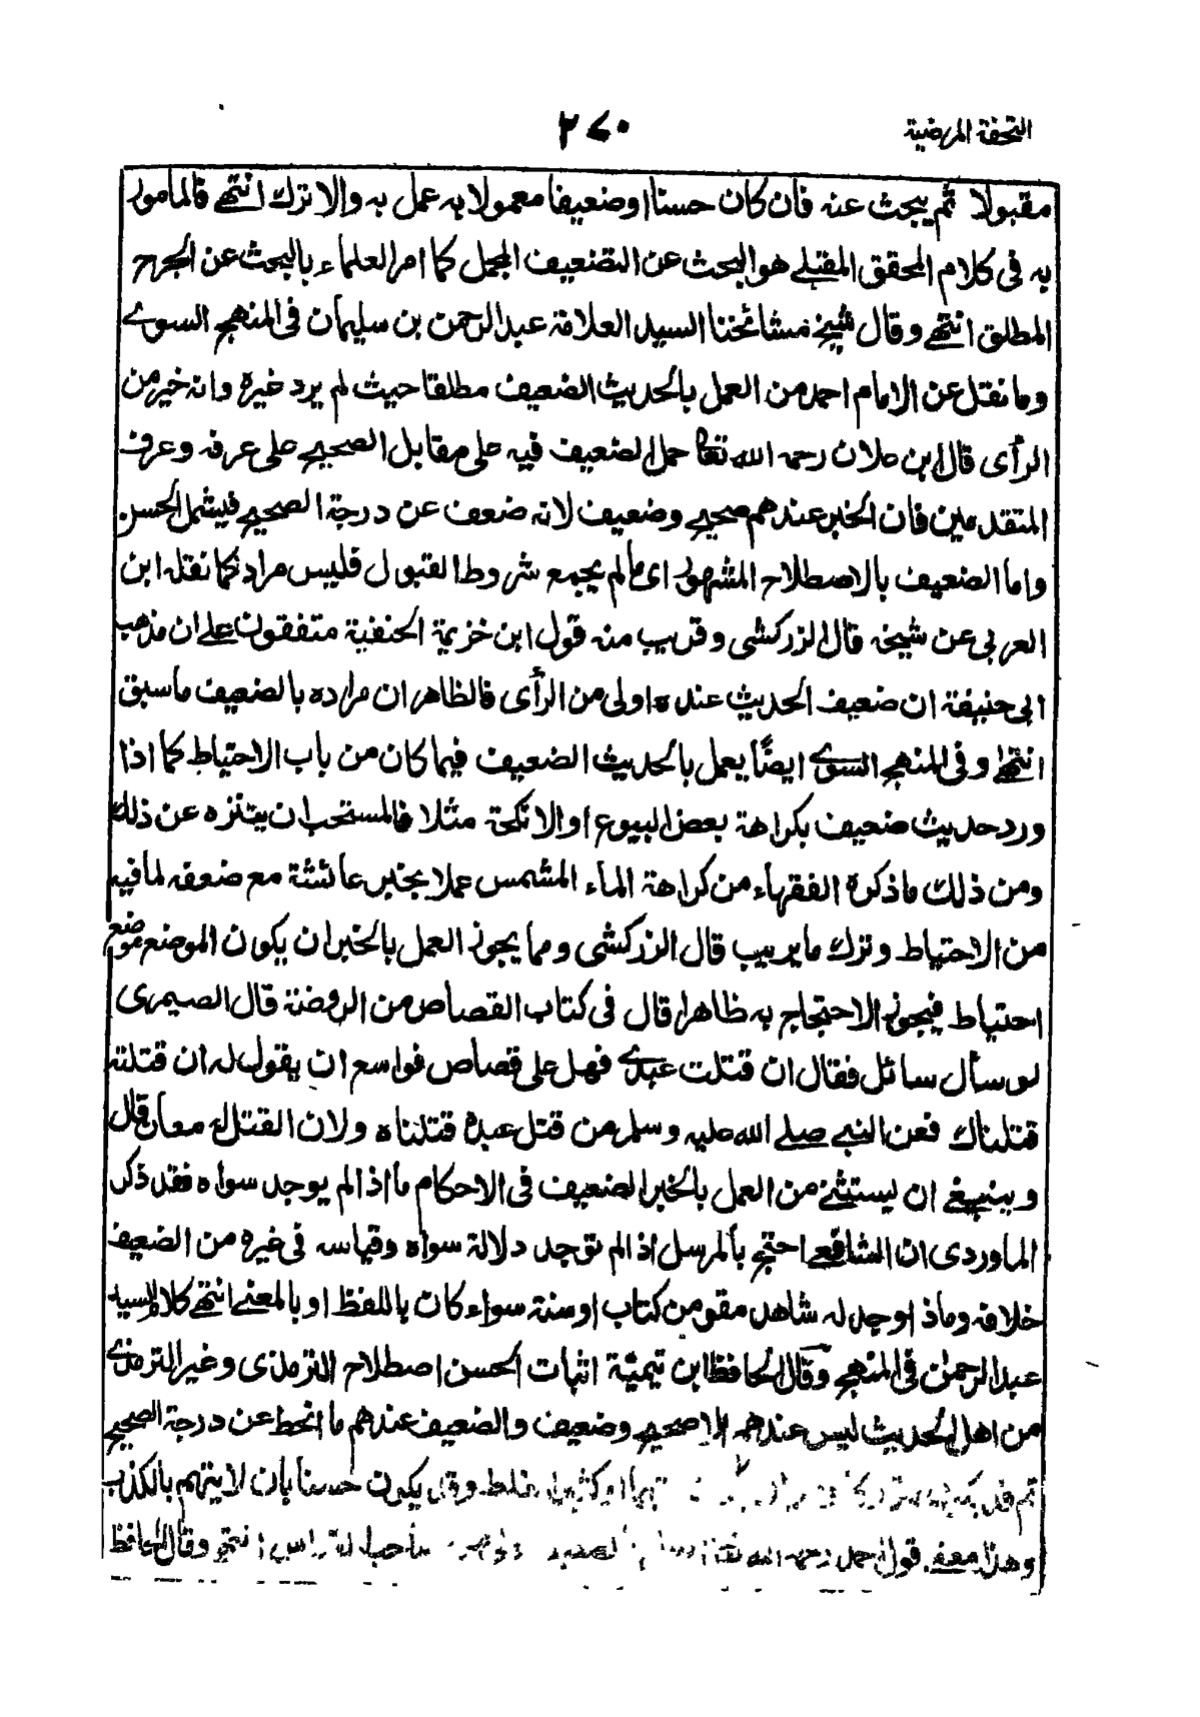 التحفة المرضية
٢٧٠
مقبولا ثم يبحث عنه فان كان حسنا اوضعيفا معمولا به عمل به والا ترك انتهى فالمامور
به فى كلام المحقق المقبلے هو البحث عن التضعيف المجمل كما امر العلماء بالبحث عن الجرح
المطلق انتهے وقال شيخ مشائخنا السيد العلامة عبد الرحمن بن سليمان فى المنهج السوے
وما نقل عن الامام احمد من العمل بالحديث الضعيف مطلقا حيث لم يرد غيره وانه خير من
الرأى قال ابن علان رحمه الله تعا حمل الضعيف فيه على مقابل الصحيح على عرفه وعرف
المتقدمين فان الخبر عندهم صحيح وضعيف لانه ضعف عن درجة الصحيح فيشمل الحسن
واما الضعيف بالاصطلاح المشهور اى مالم يجمع شروط القبول فليس مراد كما نقله ابن
العربى عن شيخه قال الزركشى وقريب منه قول ابن خزيمة الحنفية متفقون على ان مذهب
ابى حنيفة ان ضعيف الحديث عنده اولى من الرأى فالظاهر ان مراده بالضعيف ماسبق
انتهى وفى المنهج السوے ايضًا يعمل بالحديث الضعيف فيما كان من باب الاحتياط كما اذا
ورد حديث ضعيف بكراهة بعض البيوع او الانكحة مثلا فالمستحب ان يتنزه عن ذلك
ومن ذلك ماذكره الفقهاء من كراهة الماء المشمس عملا بخبر عائشة مع ضعفه لمافيه
من الاحتياط وترك مايريب قال الزركشى ومما يجوز العمل بالخبر ان يكون الموضع موضع
احتياط فيجوز الاحتجاج به ظاهرا قال فى كتاب القصاص من الروضة قال الصيمرى
لو سأل سائل فقال ان قتلت عبدے فهل على قصاص فواسع ان يقول له ان قتلته
قتلناك فعن النبے صلے الله عليه وسلم من قتل عبده قتلناه ولان القتل له معان قال
وينبغے ان يستثنے من العمل بالخبر الضعيف فى الاحكام ما اذا لم يوجد سواه فقد ذكر
الماوردى ان الشافعے احتج بالمرسل اذا لم توجد دلالة سواه وقياسه فى غيره من الضعيف
خلافه وماذا وجد له شاهد مقو من كتاب او سنة سواء كان باللفظ او بالمعنے انتهے كلام السيد
عبد الرحمٰن فى المنهج وقال الحافظ ابن تيمية اثبات الحسن اصطلاح الترمذى وغير الترمذے
من اهل الحديث ليس عندهم الا صحيح وضعيف والضعيف عندهم ما انحط عن درجة الصحيح
ثم قد يكون وقد يكون حسنا بان لا يتهم بالكذب
وهذا معنے قول احمد رحمه الله انتهى وقال الحافظ